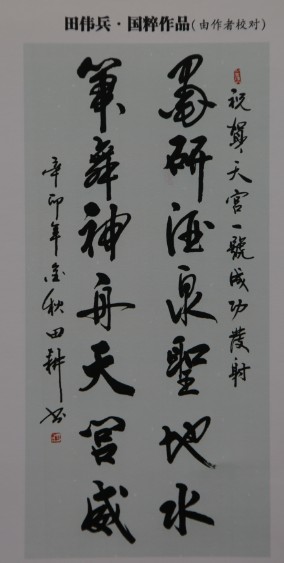 田伟兵·国粹作品(由作者校对)
祝贺天宫一號成功發射
墨研酒泉聖地水
筆舞神舟天宫威
辛卯年金秋田耕书